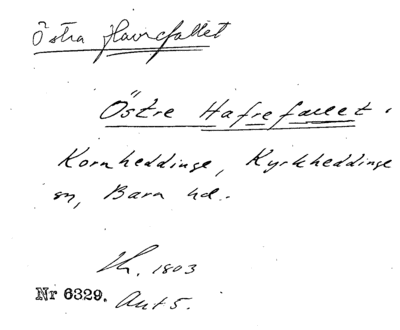 Östra Havrefallet
Östre Hafrefallet.
Kornheddinge, Kyrkheddinge
sn, Bara hd.
Lh. 1803
Nr 6329. Akt 5.